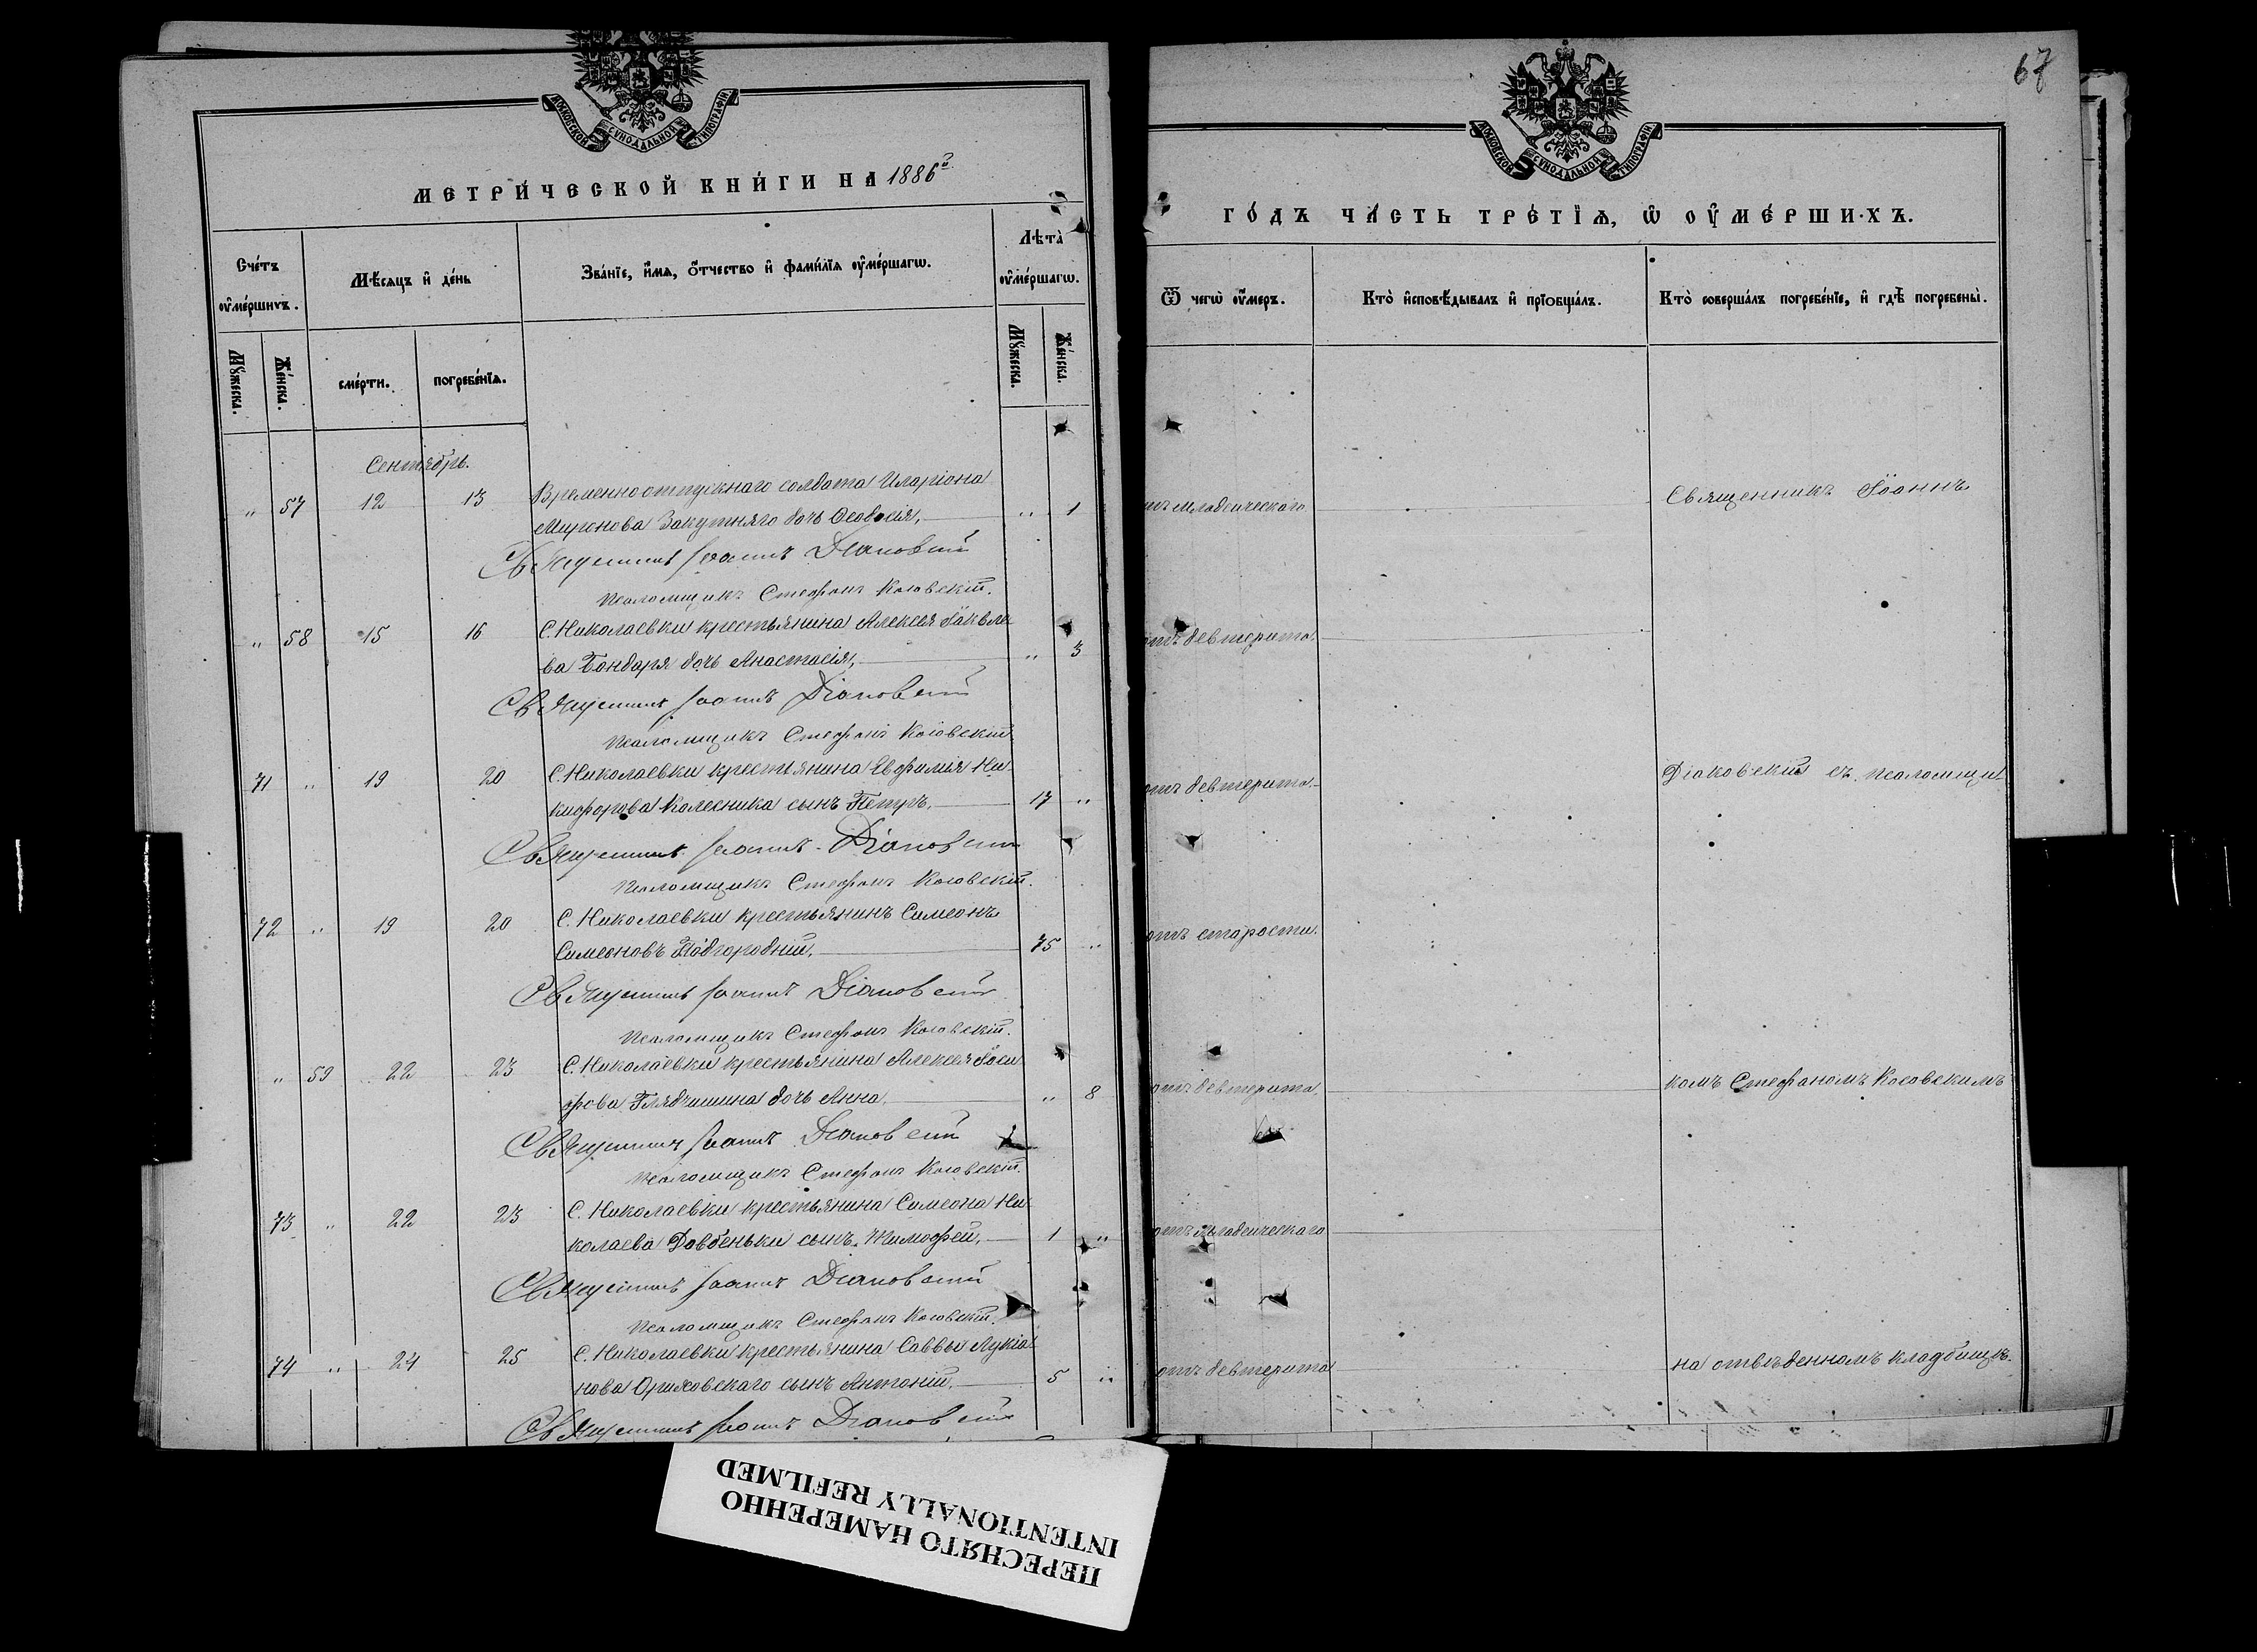 МОСКОВСКОЙ СѴНОДАЛЬНОЙ ТИПОГРАФІИ
МЕТРИ́ЧЕСКОЙ КНИ́ГИ НА 1886й
Сче́тъ ᲂу҆ме́ршихъ.
Мѣ́сяцъ и҆ де́нь
Зва́нїе, и҆́мѧ, ѻ҆́тчество и҆ фами́лїѧ ᲂу҆ме́ршагѡ.
Лѣта̀ ᲂу҆ме́ршагѡ.
Мꙋ́жеска.
Же́нска.
сме́рти.
погребе́нїѧ.
Мꙋ́жеска.
Же́нска.
Сентябрь.
„ 57 12 13 Временноотпускнаго солдата Иларіона
Миронова Закутняго дочь Ѳеодосія, „ 1
Священникъ Іоаннъ Діаковскій
Псаломщикъ Стефанъ Косовскій.
„ 58 15 16 С. Николаевки крестьянина Алексея Іаковле
ва Бондаря дочь Анастасія, „ 3
Священникъ Іоаннъ Діаковскій
Псаломщикъ Стефанъ Косовскій.
71 „ 19 20 С. Николаевки крестьянина Евфимія Ни
кифорова Колесника сынъ Петръ. 17 „
Священникъ Іоаннъ Діаковскій
Псаломщикъ Стефанъ Косовскій.
72 „ 19 20 С. Николаевки крестьянинъ Симеонъ
Симеоновъ Подгородний. 75 „
Священникъ Іоаннъ Діаковскій
Псаломщикъ Стефанъ Косовскій.
„ 59 22 23 С. Николаевки крестьянина Алексея Іоси
фова дочь Анна. „ 8
Священникъ Іоаннъ Діаковскій
Псаломщикъ Стефанъ Косовскій.
73 „ 22 23 С. Николаевки крестьянина Симеона Ни
колаева Довбеньки сынъ Тимофей. 1 „
Священникъ Іоаннъ Діаковскій
Псаломщикъ Стефанъ Косовскій.
74 „ 24 25 С. Николаевки крестьянина Саввы Лукіа
нова Ориховскаго сынъ Антоній. 5 „
Священникъ Іоаннъ Діаковскій
67
МОСКОВСКОЙ СѴНОДАЛЬНОЙ ТИПОГРАФІИ
ГО́ДЪ ЧА́СТЬ ТРЕ́ТЇѦ, Ѡ҆ ОУ҆МЕ́РШИХЪ.
Ѿ чегѡ̀ ᲂу҆́меръ.
Кто̀ и҆сповѣ́дывалъ и҆ прїобща́лъ.
Кто̀ соверша́лъ погребе́нїе, и҆ гдѣ̀ погребены̀.
отъ младенческаго
Священникъ Іоаннъ
отъ дефтерита.
отъ дефтерита.
Діаковскій съ псаломщи
отъ старости.
отъ дефтерита.
комъ Стефаномъ Косовскимъ
отъ младенческаго
отъ дефтерита
на отведенномъ кладбищѣ.
ПЕРЕСНЯТО НАМЕРЕННО
INTENTIONALLY REFILMED